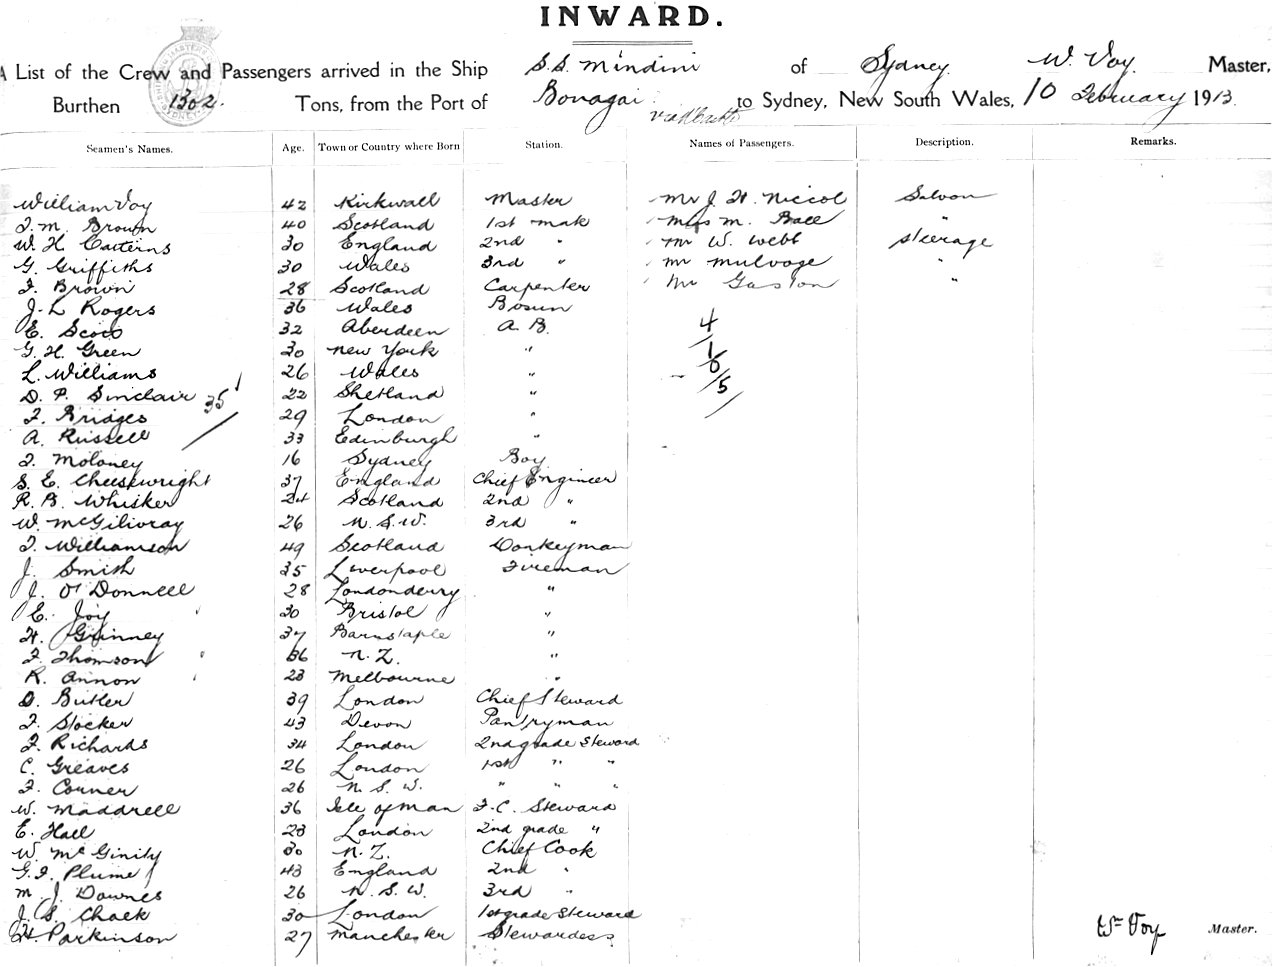 INWARD.
A List of the Crew and Passengers arrived in the Ship S.S. Mindini of Sydney W. Voy. Master,
Burthen 1302. Tons, from the Port of Bonagai to Sydney, New South Wales, 10 February 1913.
Seamen's Names. Age. Town or Country where Born Station. Names of Passengers. Description. Remarks.
William Voy 42 Kirkwall Master Mr J. H. Niccol Saloon
J. M. Brown 40 Scotland 1st mate Miss M. Ball "
W. H. Carterns 30 England 2nd " Mr W. Webb Steerage
G. Griffiths 30 Wales 3rd " Mr Mulvoge "
J. Brown 28 Scotland Carpenter Mr Gaston "
J. L Rogers 36 Wales Bosun
E. Scott 32 Aberdeen A. B. 4
G. H. Green 30 New York " 1
L. Williams 26 Wales " 5
D. P. Sinclair 35 22 Shetland "
J. Bridges 29 London "
A. Russell 33 Edinburgh "
J. Moloney 16 Sydney Boy
S. E. Cheesewright 37 England Chief Engineer
R. B. Whisker 24 Scotland 2nd "
W. McGilivray 26 N. S. W. 3rd "
J. Williamson 49 Scotland Donkeyman
J. Smith 35 Liverpool Fireman
J. O'Donnell 28 Londonderry "
E. Joy 30 Bristol "
H. Grinney 37 Barnstaple "
J. Thomson 36 N. Z. "
R. Annon 23 Melbourne "
D. Butler 39 London Chief Steward
J. Stocker 43 Devon Pantryman
J. Richards 34 London 2nd grade Steward
C. Greaves 26 London 1st " "
J. Corner 26 N. S. W. " " "
W. Maddrell 36 Isle of Man F. C. Steward
E. Hall 23 London 2nd grade "
W. McGinity 30 N. Z. Chief Cook
G. J. Plume 43 England 2nd "
M. J. Downes 26 N. S. W. 3rd "
J. S. Chalk 30 London 1st grade Steward
H. Parkinson 27 Manchester Stewardess
Wm Voy Master.